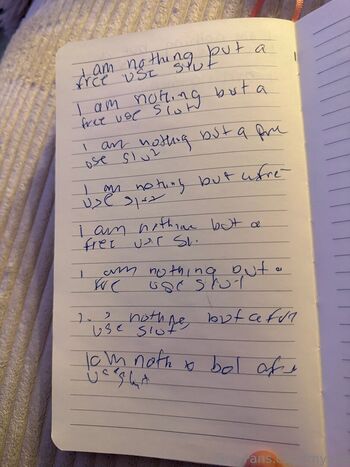 I am nothing but a
free use slut
I am nothing but a
free use slut
I am nothing but a free
use slut
I am nothing but a free
use slut
I am nothing but a
free use sl.
I am nothing but a
free use slut
nothing but a free
use slut
I am noth but a free
use slut